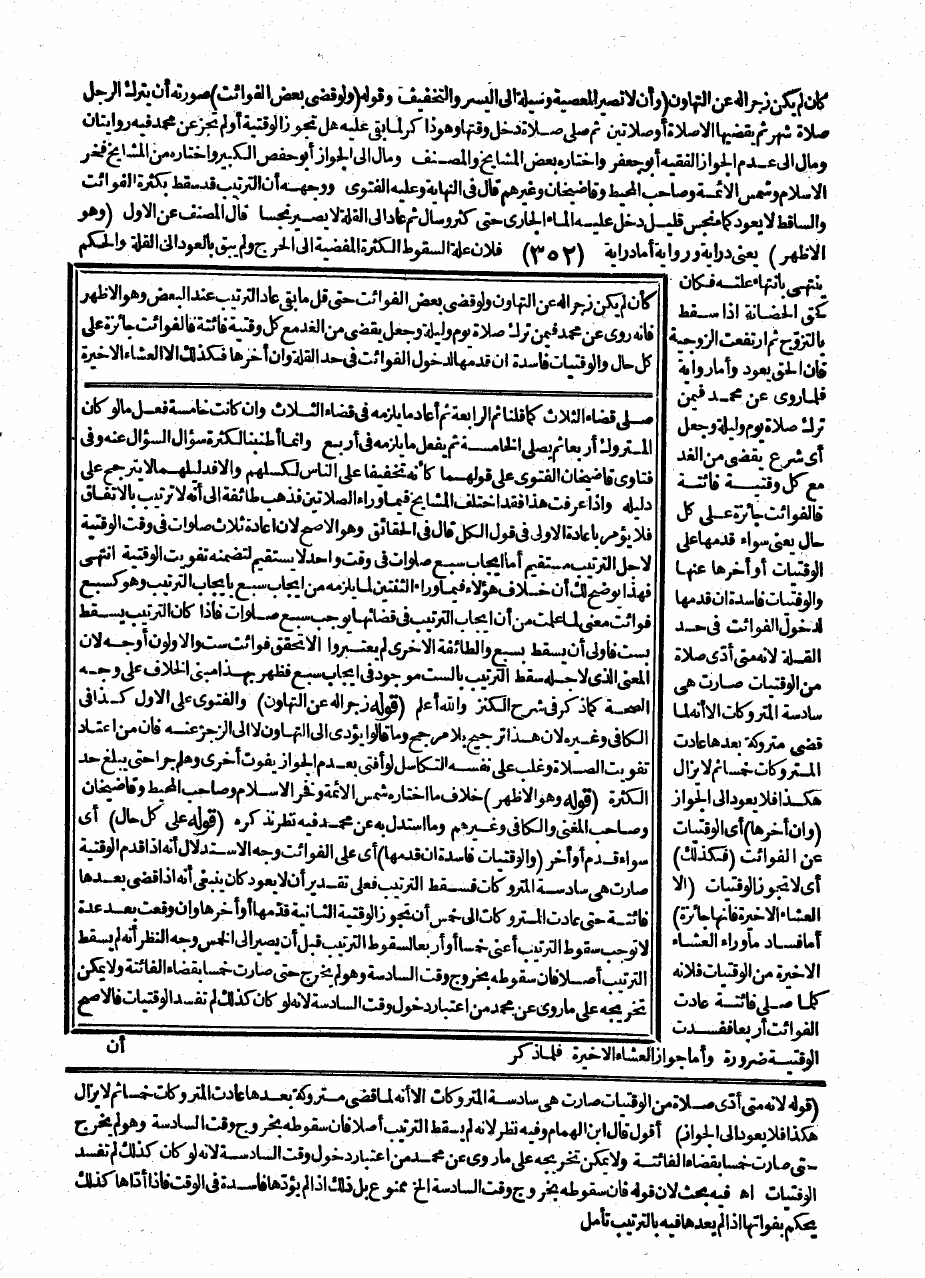 كان لم يكن زجرا له عن التهاون (وأن لا تصير المعصية وسيلة الى اليسر والتخفيف وقوله (ولو قضى بعض الفوائت) صورته أن يترك الرجل
صلاة شهر ثم يقضيها الا صلاة أو صلاتين ثم صلى صلاة دخل وقتها وهو ذاكر لما بقي عليه هل تجوز الوقتية أو لم تجز عن محمد فيه روايتان
ومال الى عدم الجواز الفقيه أبو جعفر واختاره بعض المشايخ والمصنف ومال الى الجواز أبو حفص الكبير واختاره من المشايخ فخر
الاسلام وشمس الائمة وصاحب المحيط وقاضيخان وغيرهم قال في النهاية وعليه الفتوى ووجهه أن الترتيب قد سقط بكثرة الفوائت
والساقط لا يعود كماء نجس قليل دخل عليه الماء الجارى حتى كثر وسال ثم عاد الى القلة لا يصير نجسا قال المصنف عن الاول (وهو
الاظهر) يعنى دراية ورواية أما دراية (٣٥٢) فلان علة السقوط الكثرة المفضية الى الحرج ولم يبق بالعود الى القلة والحكم
ينتهى بانتهاء علته فكان
كحق الحضانة اذا سقط
بالتزوج ثم ارتفعت الزوجية
فان الحق يعود وأما رواية
فلما روى عن محمد فيمن
ترك صلاة يوم وليلة وجعل
أى شرع يقضى من الغد
مع كل وقتية فائتة
فالفوائت جائزة على كل
حال يعنى سواء قدمها على
الوقتيات أو أخرها عنها
والوقتيات فاسدة ان قدمها
لدخول الفوائت فى حد
القلة لانه متى أدى صلاة
من الوقتيات صارت هى
سادسة المتروكات الا أنه لما
قضى متروكة بعدها عادت
المتروكات خمسا ثم لا يزال
هكذا فلا يعود الى الجواز
(وان أخرها) أى الوقتيات
عن الفوائت (فكذلك)
أى لا تجوز الوقتيات (الا
العشاء الاخيرة فانها جائزة)
أما فساد ما وراء العشاء
الاخيرة من الوقتيات فلانه
كلما صلى فائتة عادت
الفوائت أربعا ففسدت
الوقتية ضرورة وأما جواز العشاء الاخيرة فلما ذكر
كأن لم يكن زجرا له عن التهاون ولو قضى بعض الفوائت حتى قل ما بقى عاد الترتيب عند البعض وهو الاظهر
فانه روى عن محمد فيمن ترك صلاة يوم وليلة وجعل يقضى من الغد مع كل وقتية فائتة فالفوائت جائزة على
كل حال والوقتيات فاسدة ان قدمها لدخول الفوائت فى حد القلة وان أخرها فكذلك الا العشاء الاخيرة
صلى قضاء الثلاث كما قلنا ثم الرابعة ثم أعاد ما يلزمه فى قضاء الثلاث وان كانت خامسة فعل ما لو كان
المتروك أربعا ثم يصلى الخامسة ثم يفعل ما يلزمه فى أربع وانما أطنبنا لكثرة سؤال السؤال عنه وفى
فتاوى قاضيخان الفتوى على قولهما كأنه تخفيفا على الناس لكسلهم والا فدليلهما لا يترجح على
دليله واذا عرفت هذا فقد اختلف المشايخ فيما وراء الصلاتين فذهب طائفة الى أنه لا ترتيب بالاتفاق
فلا يؤمر باعادة الاولى فى قول الكل قال فى الحقائق وهو الاصح لان اعادة ثلاث صلوات فى وقت الوقتية
لاجل الترتيب مستقيم أما ايجاب سبع صلوات فى وقت واحد لا يستقيم لتضمنه تفويت الوقتية انتهى
فهذا يوضح لك أن خلاف هؤلاء فيما وراء الثنتين لما يلزمه من ايجاب سبع بايجاب الترتيب وهو كسبع
فوائت معنى لما علمت من أن ايجاب الترتيب فى قضائها يوجب سبع صلوات فاذا كان الترتيب يسقط
بست فاولى أن يسقط بسبع والطائفة الاخرى لم يعتبروا الا تحقق فوائت ست والاولون أوجه لان
المعنى الذى لاجله سقط الترتيب بالست موجود فى ايجاب سبع فظهر بهذا مبنى الخلاف على وجه
الصحة كما ذكر فى شرح الكنز والله أعلم (قوله زجرا له عن التهاون) والفتوى على الاول كذا فى
الكافى وغيره لان هذا ترجيح بلا مرجح وما قالوا يؤدى الى التهاون لا الى الزجر عنه فان من اعتاد
تفويت الصلاة وغلب على نفسه التكاسل لو أفتى بعدم الجواز يفوت أخرى وهلم جرا حتى يبلغ حد
الكثرة (قوله وهو الاظهر) خلاف ما اختاره شمس الائمة وفخر الاسلام وصاحب المحيط وقاضيخان
وصاحب المغنى والكافى وغيرهم وما استدل به عن محمد فيه نظر نذكره (قوله على كل حال) أى
سواء قدم أو أخر (والوقتيات فاسدة ان قدمها) أى على الفوائت وجه الاستدلال أنه اذا قدم الوقتية
صارت هى سادسة المتروكات فسقط الترتيب فعلى تقدير أن لا يعود كان ينبغى أنه اذا قضى بعدها
فائتة حتى عادت المتروكات الى خمس أن تجوز الوقتية الثانية قدمها أو أخرها وان وقعت بعد عدة
لا توجب سقوط الترتيب أعنى خمسا أو أربعا لسقوط الترتيب قبل أن يصير الى الخمس وجه النظر أنه لم يسقط
الترتيب أصلا فان سقوطه بخروج وقت السادسة وهو لم يخرج حتى صارت خمسا بقضاء الفائتة ولا يمكن
تخريجه على ما روى عن محمد من اعتبار دخول وقت السادسة لانه لو كان كذلك لم تفسد الوقتيات فالاصح
أن
(قوله لانه متى أدى صلاة من الوقتيات صارت هى سادسة المتروكات الا أنه لما قضى متروكة بعدها عادت المتروكات خمسا ثم لا يزال
هكذا فلا يعود الى الجواز) أقول قال ابن الهمام وفيه نظر لانه لم يسقط الترتيب أصلا فان سقوطه بخروج وقت السادسة وهو لم يخرج
حتى صارت خمسا بقضاء الفائتة ولا يمكن تخريجه على ما روى عن محمد من اعتبار دخول وقت السادسة لانه لو كان كذلك لم تفسد
الوقتيات اه فيه بحث لان قوله فان سقوطه بخروج وقت السادسة الخ ممنوع بل ذلك اذا لم يؤدها فاسدة فى الوقت فاذا أداها كذلك
يحكم بفواتها اذا لم يعدها فيه بالترتيب تأمل